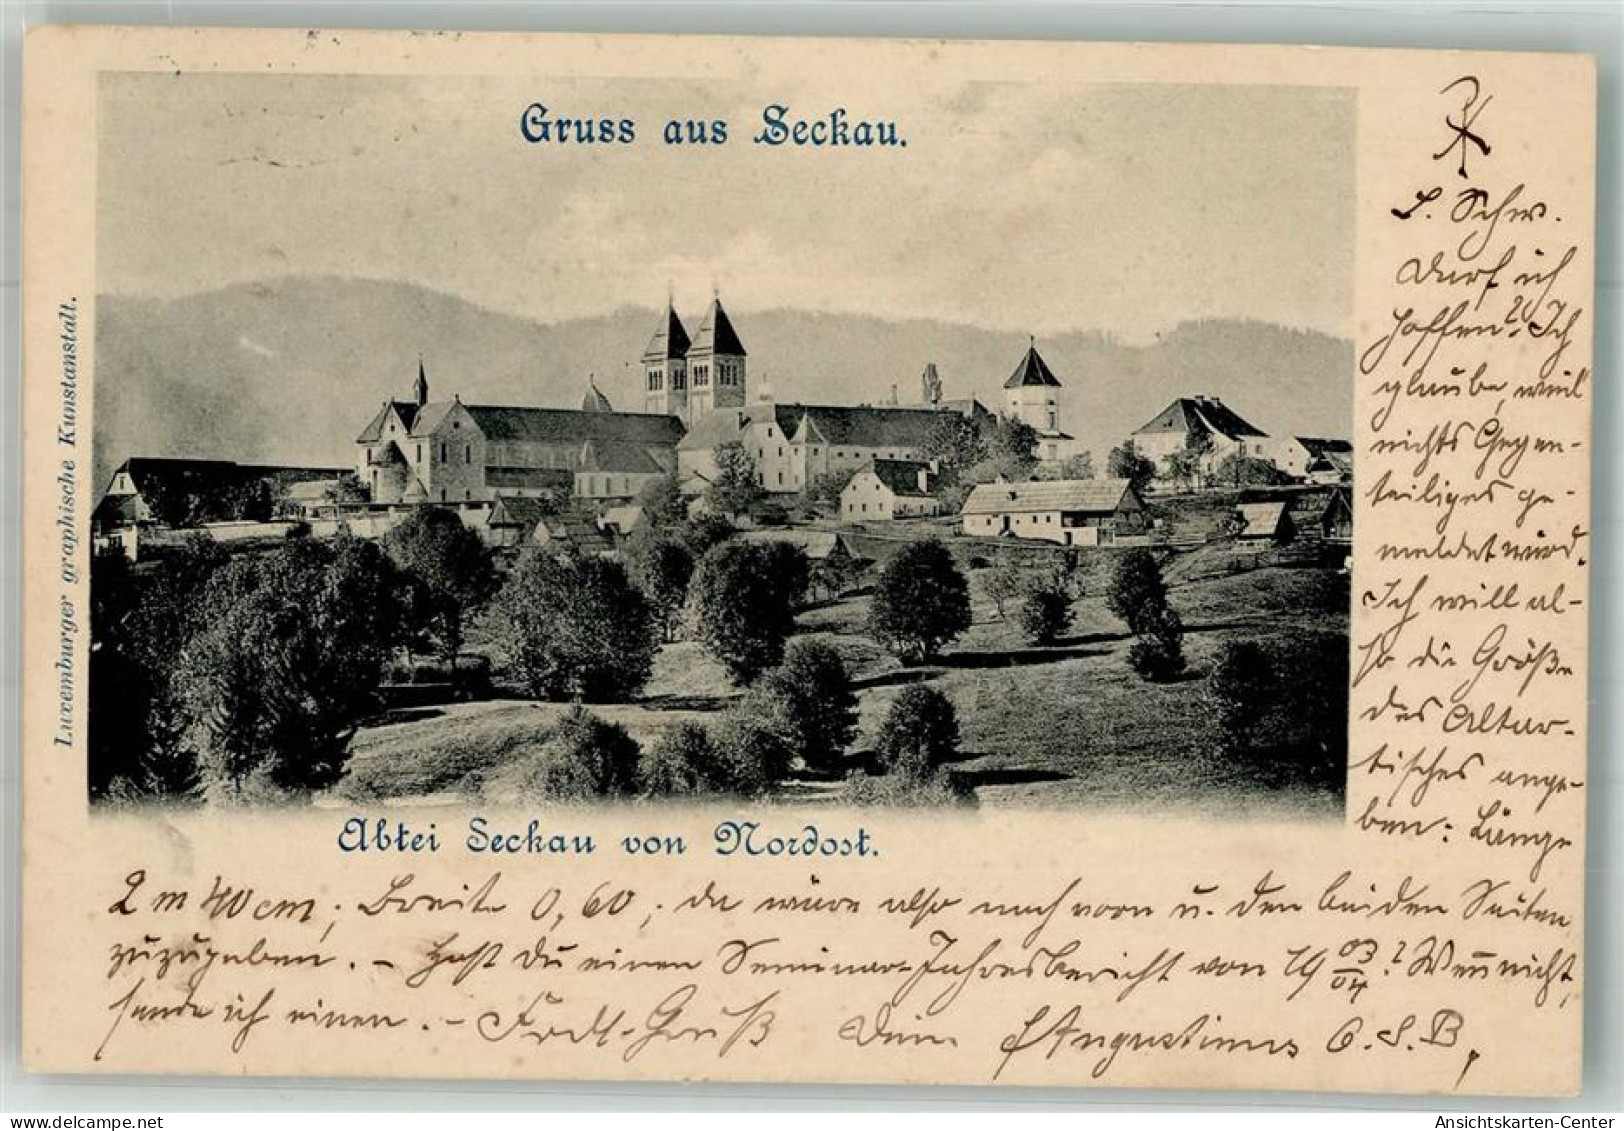 Gruss aus Seckau.
Luxemburger graphische Kunstanstalt.
Abtei Seckau von Nordost.
L. Schw.
Darf ich
hoffen? Ich
glaube, weil
nichts Gegen-
teiliges ge-
meldet wird.
Ich will al-
so die Größe
des Altar-
tisches ange-
ben: Länge
2 m 40 cm; Breite 0,60; da wäre also nach vorn u. den beiden Seiten
zuzugeben. – Hast du einen Seminar-Jahresbericht von 19 03/04? Wenn nicht,
sende ich einen. – Frdl. Gruß Dein P Augustinus O.S.B.
Ansichtskarten-Center